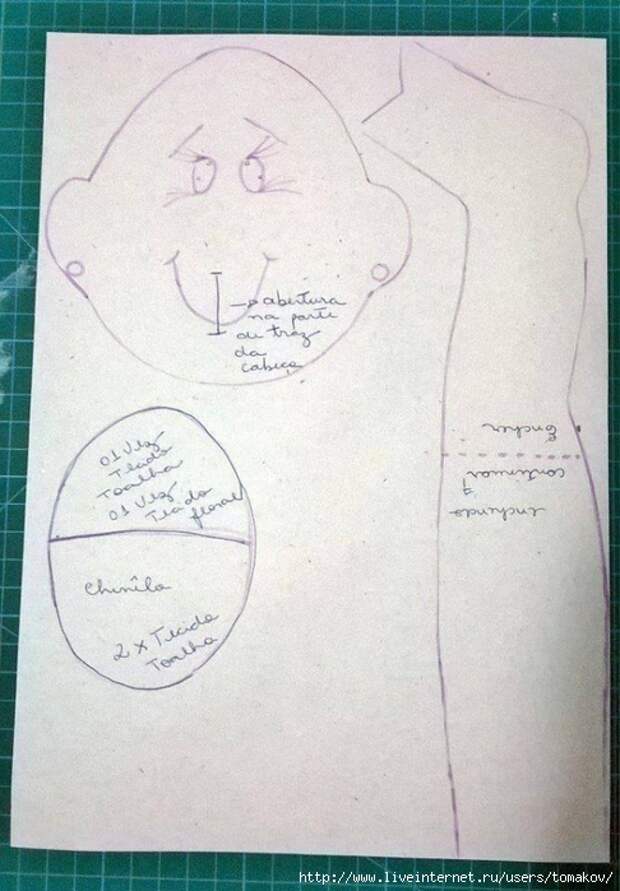 abertura
na parte
de traz
da
cabeça
01 Vez
Tecido
Toalha
01 Vez
Tecido
floral
Chinîla
2 x Tecido
Toalha
Encher
continuar
enchendo
http://www.liveinternet.ru/users/tomakov/